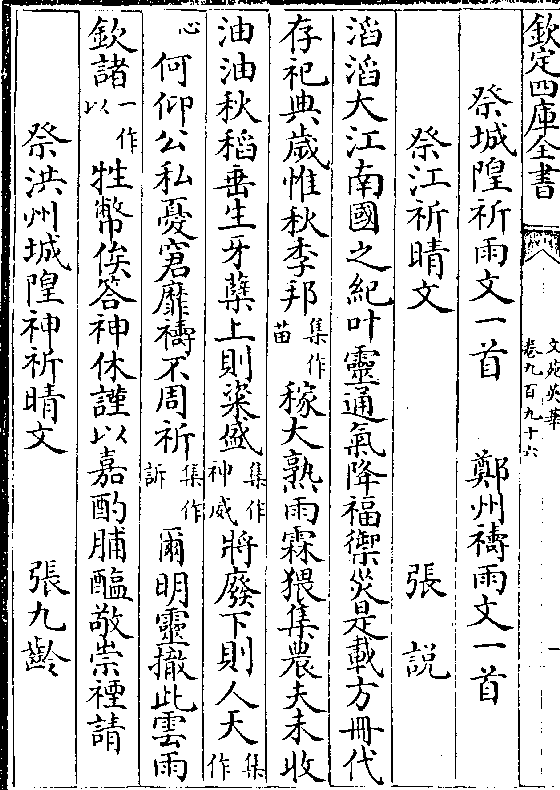 欽定四庫全書
文苑英華
卷九百九十六
祭城隍祈雨文一首 鄭州禱雨文一首
祭江祈晴文 張說
滔滔大江南國之紀叶靈通氣降福禦災是載方冊代
存祀典歲惟秋季邦集作苗稼大熟雨霖猥集農夫未收
油油秋稻垂生牙蘖上則粢盛集作神威將廢下則人天集作
心何仰公私憂窘靡禱不周祈集作訴爾明靈撤此雲雨
欽諸一作以牲幣俟答神休謹以嘉酌脯醢敬崇禋請
祭洪州城隍神祈晴文 張九齡